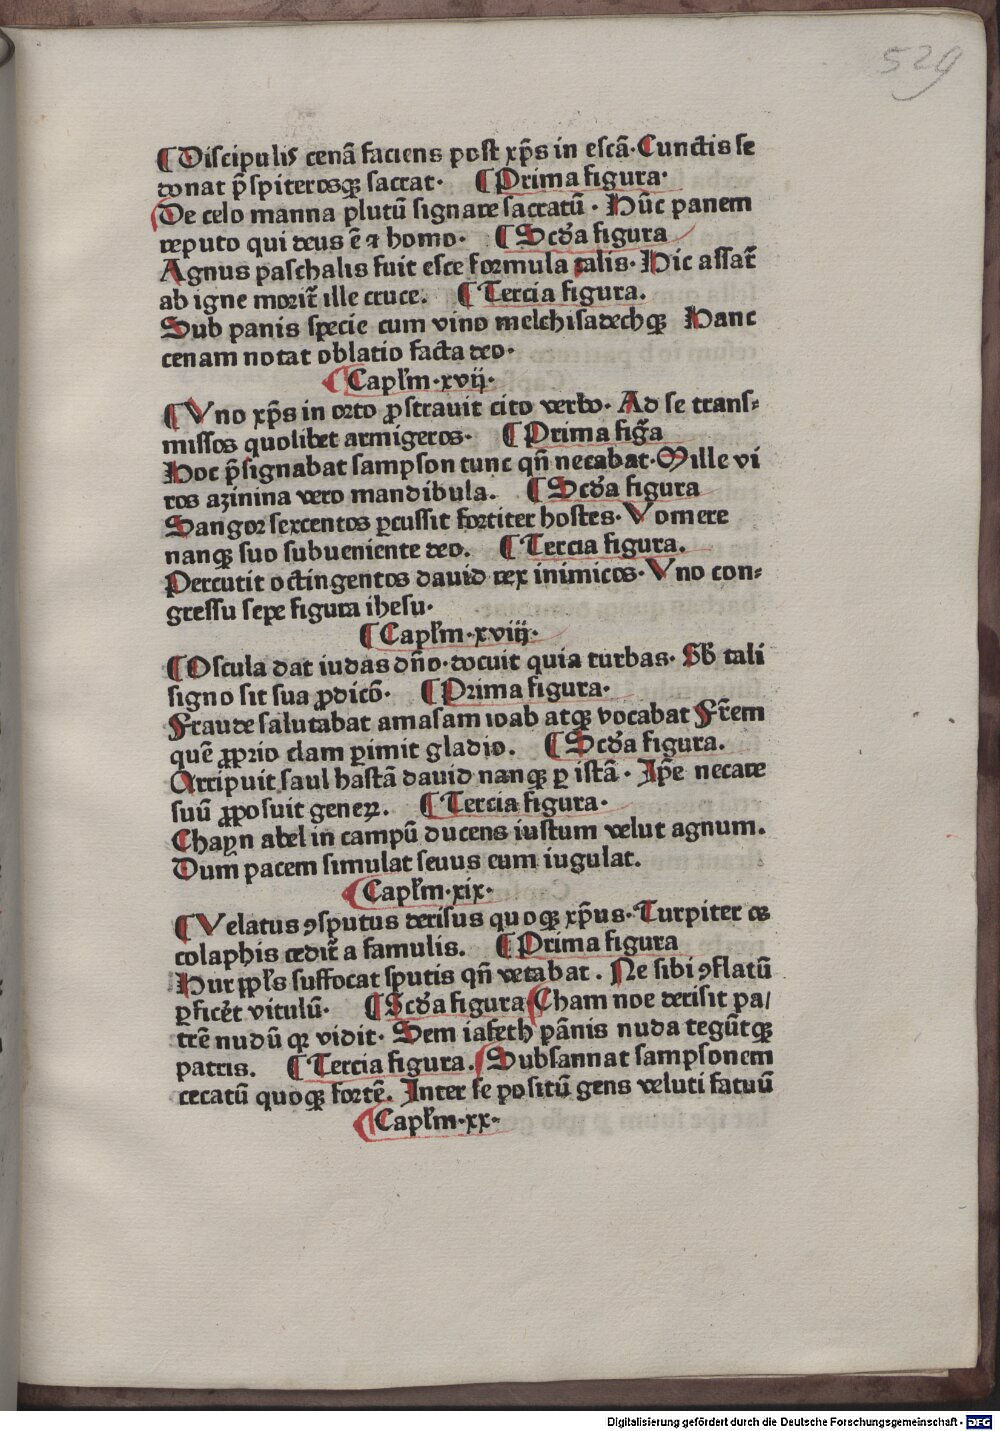 529
⁋Discipulis cenā faciens post xp̄s in escā· Cunctis se
donat p̄spiterosqꝫ sacrat· ⁋Prima figura·
De celo manna plutū signare sacratū· Hūc panem
reputo qui deus ē ⁊ homo· ⁋Scd̄a figura
Agnus paschalis fuit esce formula talis· Hic assat᷑
ab igne morit᷑ ille cruce. ⁋Tercia figura.
Sub panis specie cum vino melchisadechqꝫ Hanc
cenam notat oblatio facta deo·
⁋Capl̄m·xvij·
⁋Vno xp̄s in orto ꝓstrauit cito verbo· Ad se trans⸗
missos quolibet armigeros· ⁋Prima figᷓa
Hoc p̄signabat sampson tunc qn̄ necabat· Mille vi
ros azinina vero mandibula. ⁋Scd̄a figura
Sangor sexcentos ꝑcussit fortiter hostes· Vomere
nanqꝫ suo subueniente deo. ⁋Tercia figura.
Percutit octingentos dauid rex inimicos· Vno con⸗
gressu sepe figura ihesu·
⁋Capl̄m·xviij·
⁋Oscula dat iudas dn̄o· docuit quia turbas· Sb̄ tali
signo sit sua ꝓdicō· ⁋Prima figura·
Fraude salutabat amasam ioab atqꝫ vocabat Fr̄em
quē ꝓprio clam ꝑimit gladio. ⁋Scd̄a figura.
Arripuit saul hastā dauid nanqꝫ ꝑ istā· Ip̄e necare
suū ꝓposuit geneꝝ. ⁋Tercia figura·
Chayn abel in campū ducens iustum velut agnum.
Dum pacem simulat seuus eum iugulat.
⁋Capl̄m·xix·
⁋Velatus ꝯsputus derisus quoqꝫ xp̄us· Turpiter os
colaphis cedit᷑ a famulis. ⁋Prima figura
Hur ip̄l̄s suffocat sputis qn̄ vetabat. Ne sibi ꝯflatū
ꝑficer̄t vitulū· ⁋Scd̄a figura Cham noe derisit pa/
trē nudū qꝫ vidit· Sem iafeth pānis nuda tegūtqꝫ
patris. ⁋Tercia figura. Subsannat sampsonem
cecatū quoqꝫ fortē. Inter se positū gens veluti fatuū
⁋Capl̄m·xx·
Digitalisierung gefördert durch die Deutsche Forschungsgemeinschaft - DFG